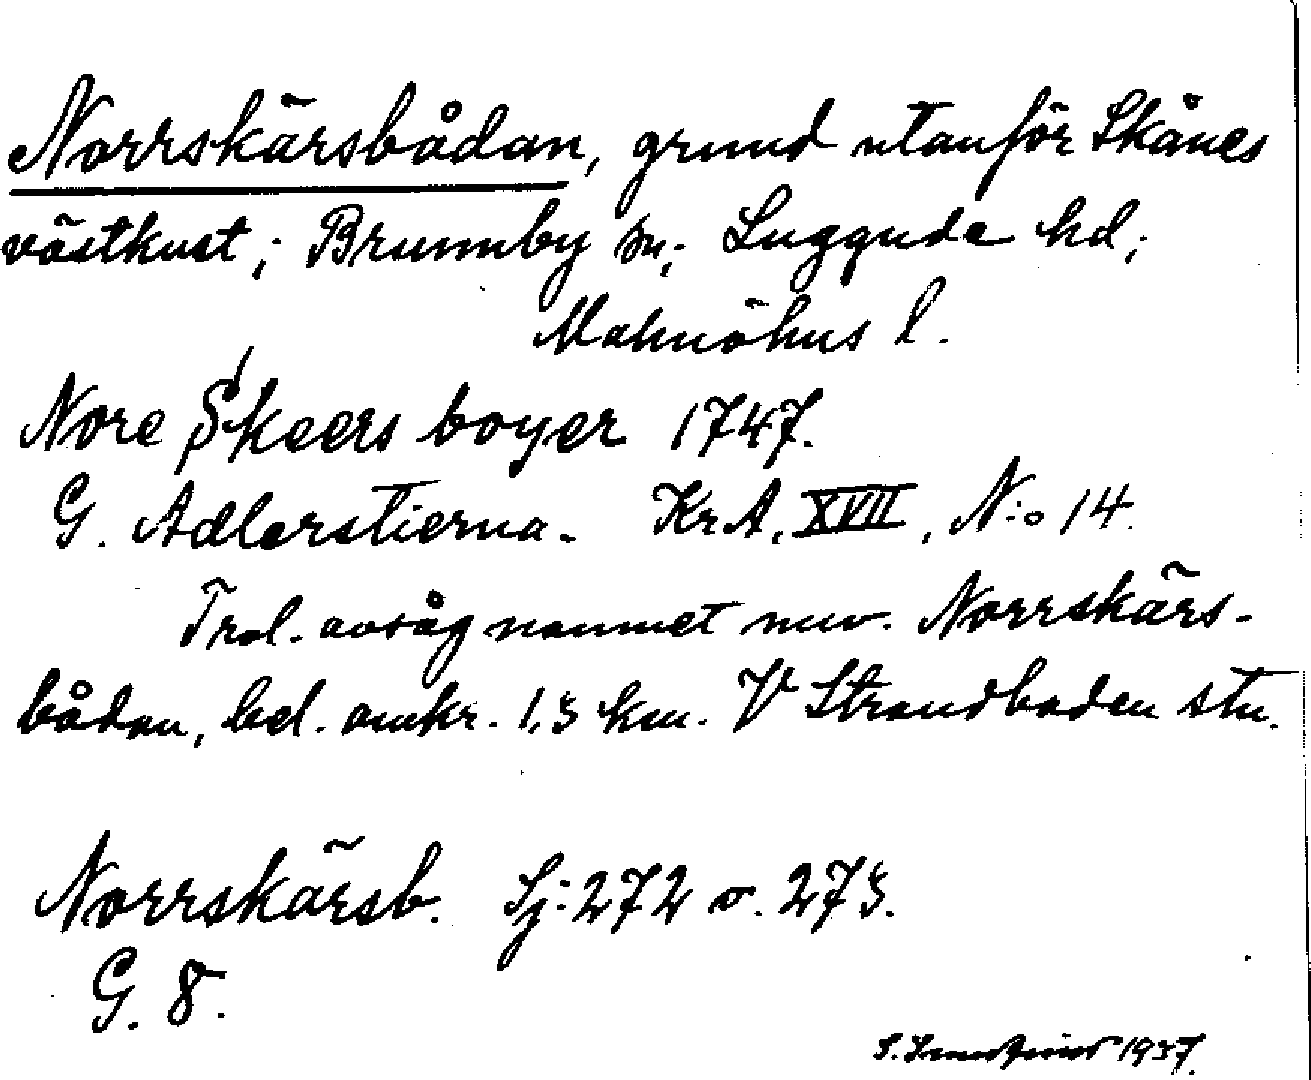 Norrskärsbådan, grund utanför Skånes
västkust; Brunnby sn; Luggude hd;
Malmöhus l.
Nore Skeers boyer 1747.
G. Adlerstierna. KrA, XVII, N:o 14.
Trol. avsåg namnet nuv. Norrskärs-
bådan, bel. omkr. 1,3 km. V Strandbaden stn.
Norrskärsb. Sj: 272 o. 273.
G. 8.
S. 1937.